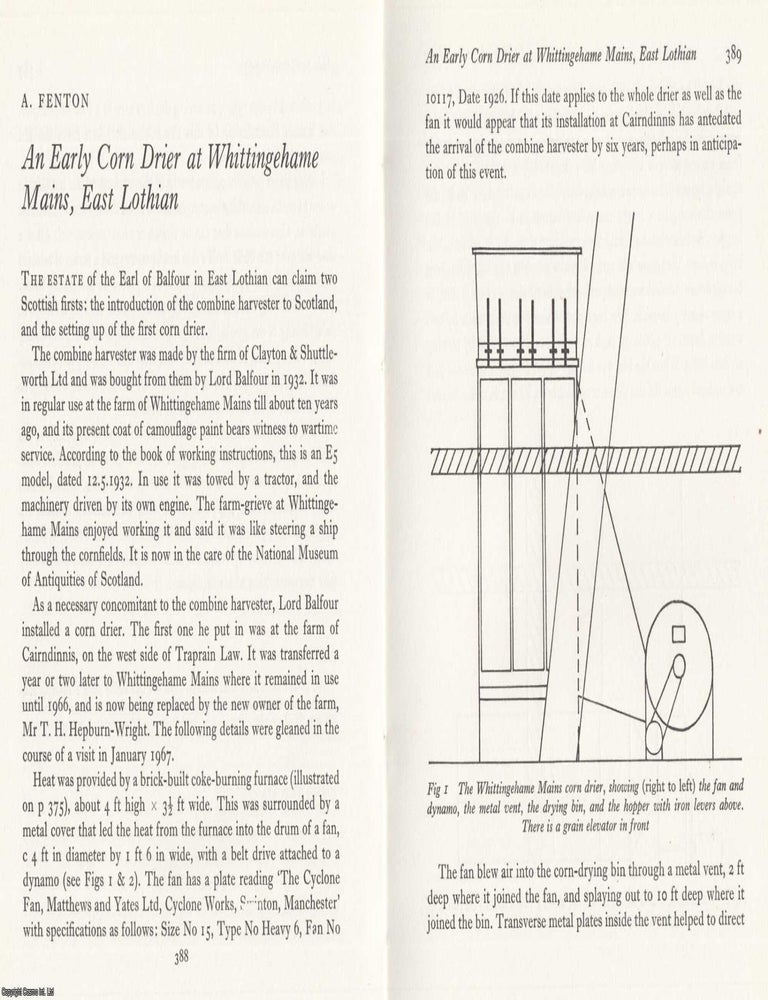 A. FENTON
An Early Corn Drier at Whittingehame
Mains, East Lothian
THE ESTATE of the Earl of Balfour in East Lothian can claim two
Scottish firsts: the introduction of the combine harvester to Scotland,
and the setting up of the first corn drier.
The combine harvester was made by the firm of Clayton & Shuttle-
worth Ltd and was bought from them by Lord Balfour in 1932. It was
in regular use at the farm of Whittingehame Mains till about ten years
ago, and its present coat of camouflage paint bears witness to wartime
service. According to the book of working instructions, this is an E5
model, dated 12.5.1932. In use it was towed by a tractor, and the
machinery driven by its own engine. The farm-grieve at Whittinge-
hame Mains enjoyed working it and said it was like steering a ship
through the cornfields. It is now in the care of the National Museum
of Antiquities of Scotland.
As a necessary concomitant to the combine harvester, Lord Balfour
installed a corn drier. The first one he put in was at the farm of
Cairndinnis, on the west side of Traprain Law. It was transferred a
year or two later to Whittingehame Mains where it remained in use
until 1966, and is now being replaced by the new owner of the farm,
Mr T. H. Hepburn-Wright. The following details were gleaned in the
course of a visit in January 1967.
Heat was provided by a brick-built coke-burning furnace (illustrated
on p 375), about 4 ft high × 3½ ft wide. This was surrounded by a
metal cover that led the heat from the furnace into the drum of a fan,
c 4 ft in diameter by 1 ft 6 in wide, with a belt drive attached to a
dynamo (see Figs 1 & 2). The fan has a plate reading 'The Cyclone
Fan, Matthews and Yates Ltd, Cyclone Works, Manchester'
with specifications as follows: Size No 15, Type No Heavy 6, Fan No
388
Copyright Cosmo Int. Ltd
An Early Corn Drier at Whittingehame Mains, East Lothian 389
10117, Date 1926. If this date applies to the whole drier as well as the
fan it would appear that its installation at Cairndinnis has antedated
the arrival of the combine harvester by six years, perhaps in anticipa-
tion of this event.
Fig 1 The Whittingehame Mains corn drier, showing (right to left) the fan and
dynamo, the metal vent, the drying bin, and the hopper with iron levers above.
There is a grain elevator in front
The fan blew air into the corn-drying bin through a metal vent, 2 ft
deep where it joined the fan, and splaying out to 10 ft deep where it
joined the bin. Transverse metal plates inside the vent helped to direct